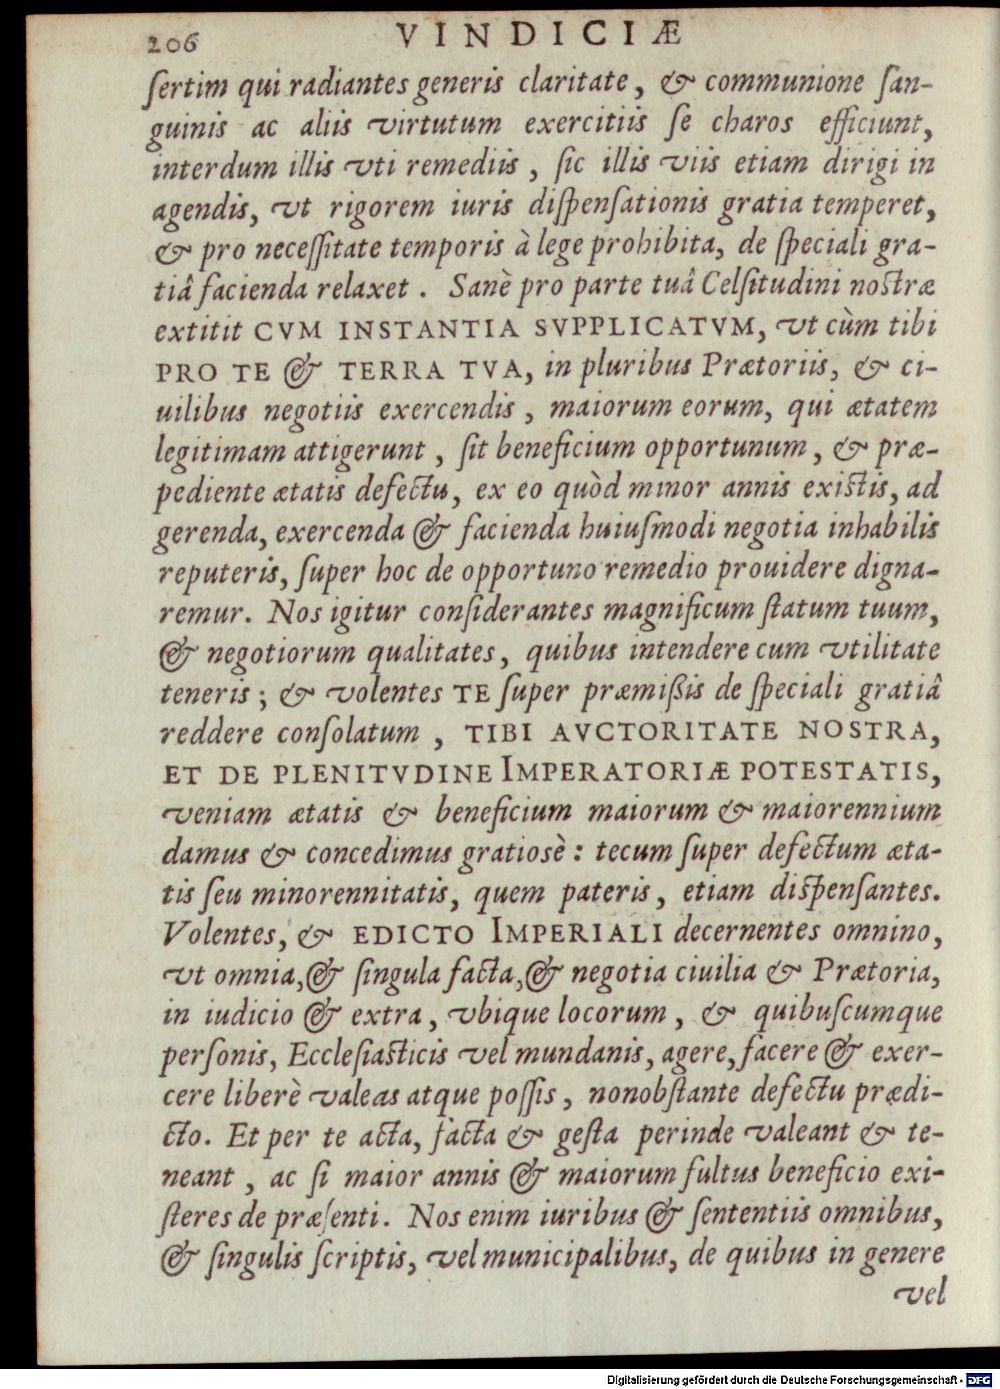 206 VINDICIÆ
ſertim qui radiantes generis claritate, & communione ſan-
guinis ac aliis virtutum exercitiis ſe charos efficiunt,
interdum illis vti remediis, ſic illis viis etiam dirigi in
agendis, vt rigorem iuris diſpenſationis gratia temperet,
& pro neceſſitate temporis à lege prohibita, de ſpeciali gra-
tiâ facienda relaxet. Sanè pro parte tuâ Celſitudini nostræ
extitit CVM INSTANTIA SVPPLICATVM, vt cùm tibi
PRO TE & TERRA TVA, in pluribus Prætoriis, & ci-
uilibus negotiis exercendis, maiorum eorum, qui ætatem
legitimam attigerunt, ſit beneficium opportunum, & præ-
pediente ætatis defectu, ex eo quòd minor annis existis, ad
gerenda, exercenda & facienda huiuſmodi negotia inhabilis
reputeris, ſuper hoc de opportuno remedio prouidere digna-
remur. Nos igitur conſiderantes magnificum ſtatum tuum,
& negotiorum qualitates, quibus intendere cum vtilitate
teneris; & volentes TE ſuper præmißis de ſpeciali gratiâ
reddere conſolatum, TIBI AVCTORITATE NOSTRA,
ET DE PLENITVDINE IMPERATORIÆ POTESTATIS,
veniam ætatis & beneficium maiorum & maiorennium
damus & concedimus gratiosè: tecum ſuper defectum æta-
tis ſeu minorennitatis, quem pateris, etiam diſpenſantes.
Volentes, & EDICTO IMPERIALI decernentes omnino,
vt omnia, & ſingula facta, & negotia ciuilia & Prætoria,
in iudicio & extra, vbique locorum, & quibuſcumque
perſonis, Eccleſiasticis vel mundanis, agere, facere & exer-
cere liberè valeas atque poſſis, nonobſtante defectu prædi-
cto. Et per te acta, facta & geſta perinde valeant & te-
neant, ac ſi maior annis & maiorum fultus beneficio exi-
ſteres de præſenti. Nos enim iuribus & ſententiis omnibus,
& ſingulis ſcriptis, vel municipalibus, de quibus in genere
vel
Digitalisierung gefördert durch die Deutsche Forschungsgemeinschaft - DFG